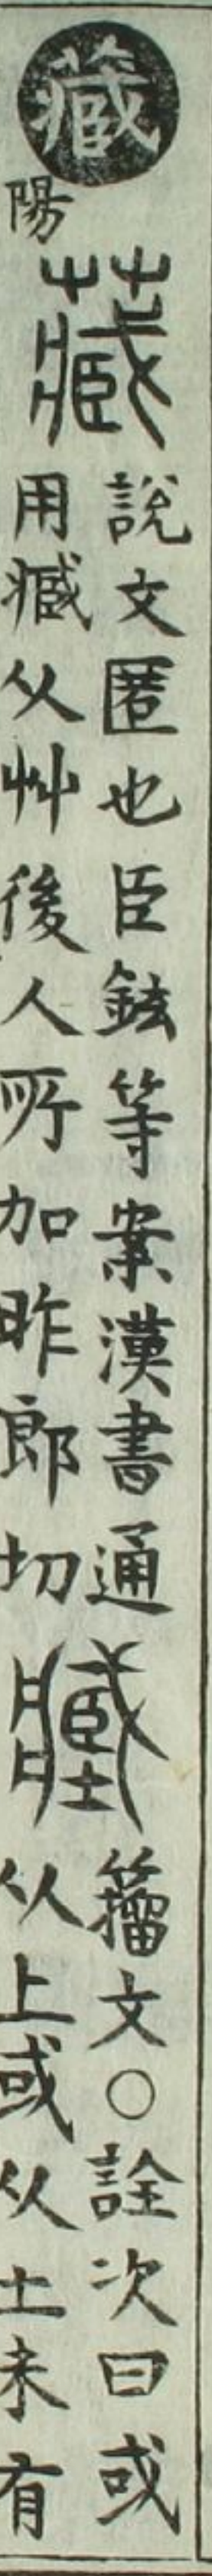 藏
陽
藏
說文匿也臣鉉等案漢書通
用臧从艸後人所加昨郎切
籒文○詮次曰或
从上或从土未有